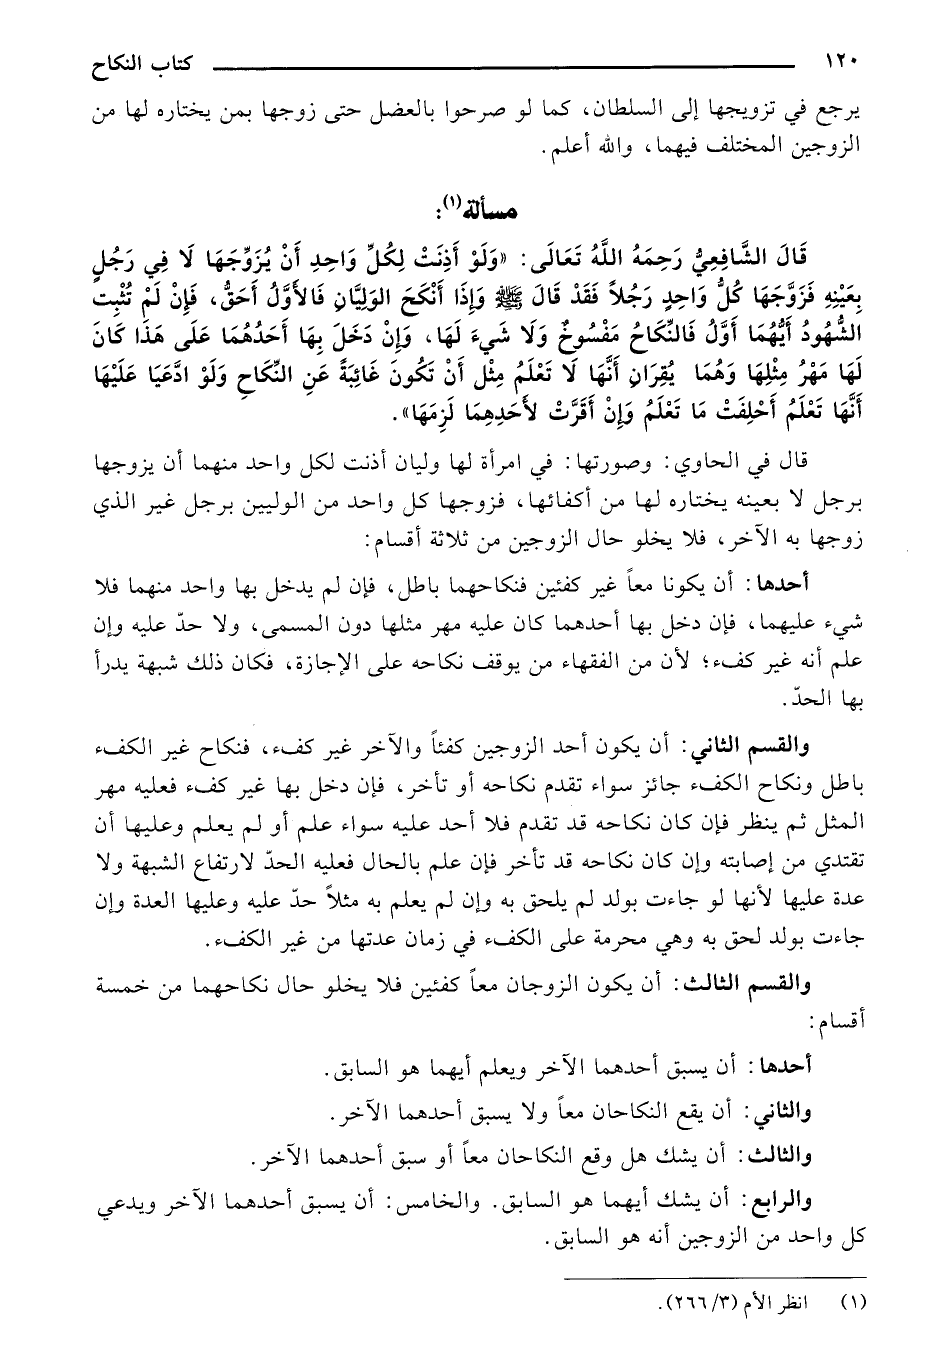 ١٢٠ كتاب النكاح
يرجع في تزويجها إلى السلطان، كما لو صرحوا بالعضل حتى زوجها بمن يختاره لها من
الزوجين المختلف فيهما، والله أعلم.
مسألة(١):
قَالَ الشَّافِعِيُّ رَحِمَهُ اللَّهُ تَعَالَى: «وَلَوْ أَذِنَتْ لِكُلِّ وَاحِدٍ أَنْ يُزَوِّجَهَا لَا فِي رَجُلٍ
بِعَيْنِهِ فَزَوَّجَهَا كُلُّ وَاحِدٍ رَجُلاً فَقَدْ قَالَ ﷺ وَإِذَا أَنْكَحَ الوَلِيَّانِ فَالأَوَّلُ أَحَقُّ، فَإِنْ لَمْ تُثْبِتِ
الشُّهُودُ أَيُّهُمَا أَوَّلُ فَالنِّكَاحُ مَفْسُوخٌ وَلَا شَيءَ لَهَا، وَإِنْ دَخَلَ بِهَا أَحَدُهُمَا عَلَى هَذَا كَانَ
لَهَا مَهْرُ مِثْلِهَا وَهُمَا يُقِرَانِ أَنَّهَا لَا تَعْلَمُ مِثْلِ أَنْ تَكُونَ غَائِبَةً عَنِ النِّكَاحِ وَلَوْ ادَّعَيَا عَلَيْهَا
أَنَّهَا تَعْلَمُ أَحْلِفَتْ مَا تَعْلَمُ وَإِنْ أَقَرَّتْ لأَحَدِهِمَا لَزِمَهَا».
قال في الحاوي: وصورتها: في امرأة لها وليان أذنت لكل واحد منهما أن يزوجها
برجل لا بعينه يختاره لها من أكفائها، فزوجها كل واحد من الوليين برجل غير الذي
زوجها به الآخر، فلا يخلو حال الزوجين من ثلاثة أقسام:
أحدها: أن يكونا معاً غير كفئين فنكاحهما باطل، فإن لم يدخل بها واحد منهما فلا
شيء عليهما، فإن دخل بها أحدهما كان عليه مهر مثلها دون المسمى، ولا حدّ عليه وإن
علم أنه غير كفء؛ لأن من الفقهاء من يوقف نكاحه على الإجازة، فكان ذلك شبهة يدرأ
بها الحدّ.
والقسم الثاني: أن يكون أحد الزوجين كفئاً والآخر غير كفء، فنكاح غير الكفء
باطل ونكاح الكفء جائز سواء تقدم نكاحه أو تأخر، فإن دخل بها غير كفء فعليه مهر
المثل ثم ينظر فإن كان نكاحه قد تقدم فلا أحد عليه سواء علم أو لم يعلم وعليها أن
تقتدي من إصابته وإن كان نكاحه قد تأخر فإن علم بالحال فعليه الحدّ لارتفاع الشبهة ولا
عدة عليها لأنها لو جاءت بولد لم يلحق به وإن لم يعلم به مثلاً حدّ عليه وعليها العدة وإن
جاءت بولد لحق به وهي محرمة على الكفء في زمان عدتها من غير الكفء.
والقسم الثالث: أن يكون الزوجان معاً كفئين فلا يخلو حال نكاحهما من خمسة
أقسام:
أحدها: أن يسبق أحدهما الآخر ويعلم أيهما هو السابق.
والثاني: أن يقع النكاحان معاً ولا يسبق أحدهما الآخر.
والثالث: أن يشك هل وقع النكاحان معاً أو سبق أحدهما الآخر.
والرابع: أن يشك أيهما هو السابق. والخامس: أن يسبق أحدهما الآخر ويدعي
كل واحد من الزوجين أنه هو السابق.
(١) انظر الأم (٣/ ٢٦٦).